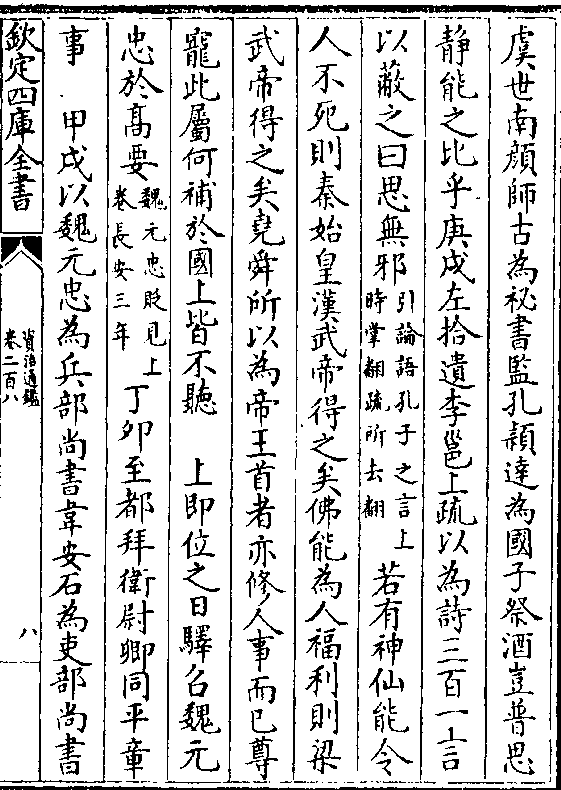 虞世南顔師古為秘書監孔頴達為國子祭酒豈普思
静能之比乎庚戌左拾遺李邕上疏以為詩三百一言
以蔽之曰思無邪引論語孔子之言上時掌翻疏所去翻若有神仙能令
人不死則秦始皇漢武帝得之矣佛能為人福利則梁
武帝得之矣堯舜所以為帝王首者亦修人事而已尊
寵此屬何補於國上皆不聽 上即位之日驛召魏元
忠於髙要魏元忠貶見上卷長安三年丁卯至都拜衛尉卿同平章
事 甲戌以魏元忠為兵部尚書韋安石為吏部尚書
欽定四庫全書
資治通鑑
卷二百八
八